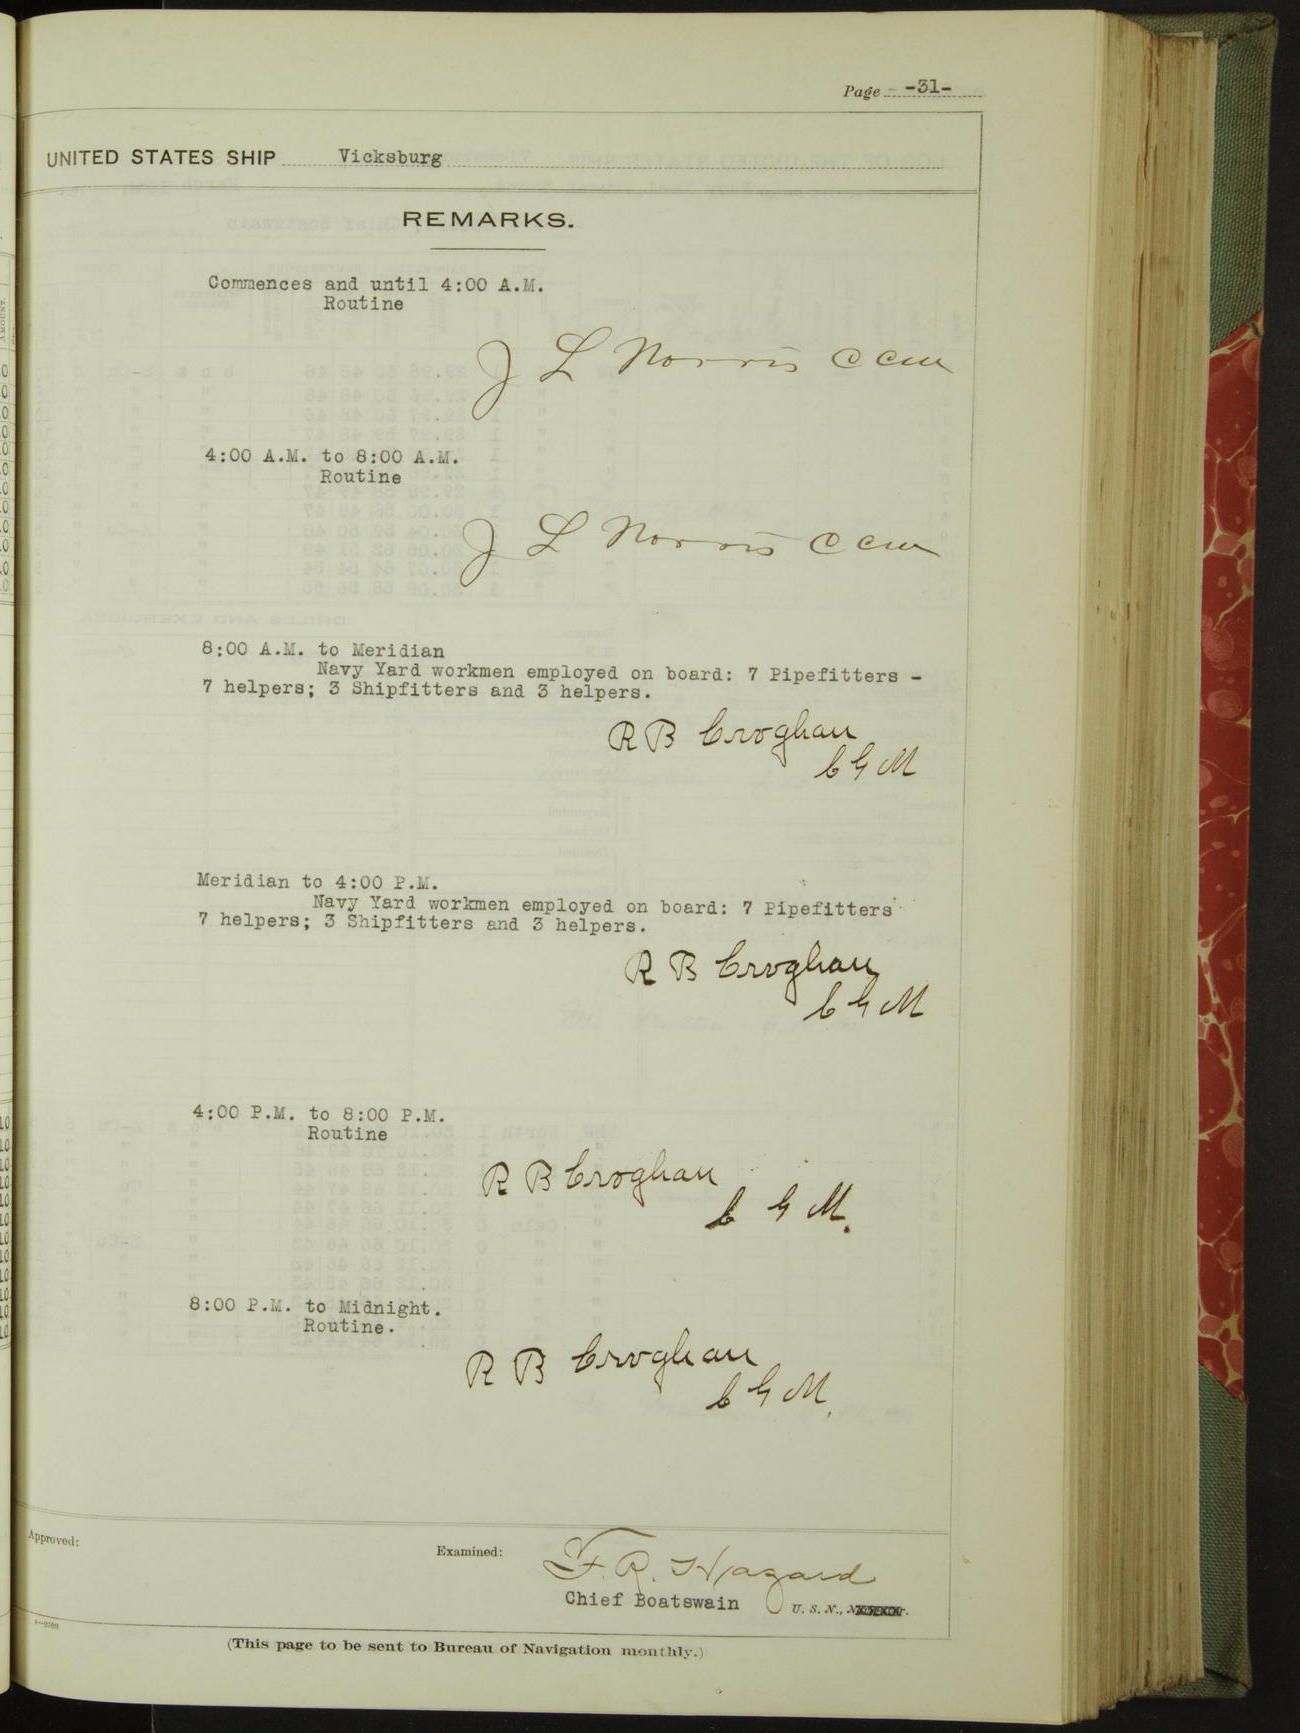 Page -31-
UNITED STATES SHIP Vicksburg
REMARKS.
Commences and until 4:00 A.M.
Routine
J L Norris C C M
4:00 A.M. to 8:00 A.M.
Routine
J L Norris C C M
8:00 A.M. to Meridian
Navy Yard workmen employed on board: 7 Pipefitters -
7 helpers; 3 Shipfitters and 3 helpers.
R B Croghan
C G M
Meridian to 4:00 P.M.
Navy Yard workmen employed on board: 7 Pipefitters
7 helpers; 3 Shipfitters and 3 helpers.
R B Croghan
C G M
4:00 P.M. to 8:00 P.M.
Routine
R B Croghan
C G M.
8:00 P.M. to Midnight.
Routine.
R B Croghan
C G M.
Approved:
Examined:
F. R. Hazard
Chief Boatswain U. S. N.,
(This page to be sent to Bureau of Navigation monthly.)